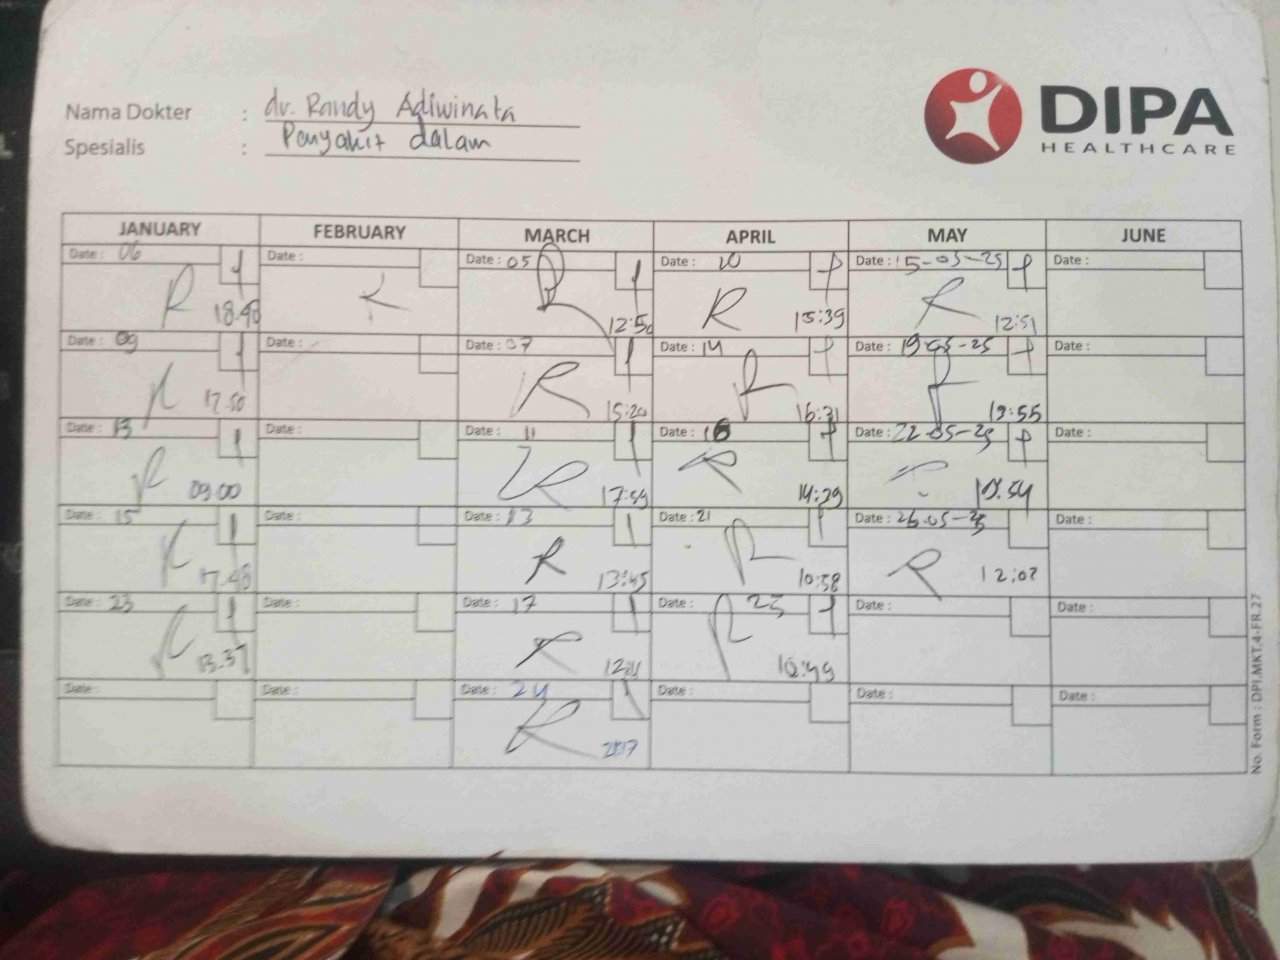 Nama Dokter : dr. Randy Adiwinata
Spesialis : Penyakit dalam
DIPA
HEALTHCARE
JANUARY FEBRUARY MARCH APRIL MAY JUNE
Date : 06 Date : Date : 05 Date : 10 Date : 15-05-25 Date :
18.40 12:50 15:39 12:51
Date : 09 Date : Date : 07 Date : 14 Date : 19-05-25 Date :
17.50 15:20 16:31 19:55
Date : 13 Date : Date : 11 Date : 16 Date : 22-05-25 Date :
09.00 17:59 14:29
Date : 15 Date : Date : 13 Date : 21 Date : 26.05-25 Date :
17.48 13:45 10:58 12:02
Date : 23 Date : Date : 17 Date : 25 Date : Date :
13.37
Date : Date : Date : 24 Date : Date : Date :
No. Form : DPI.MKT.4-FR.27